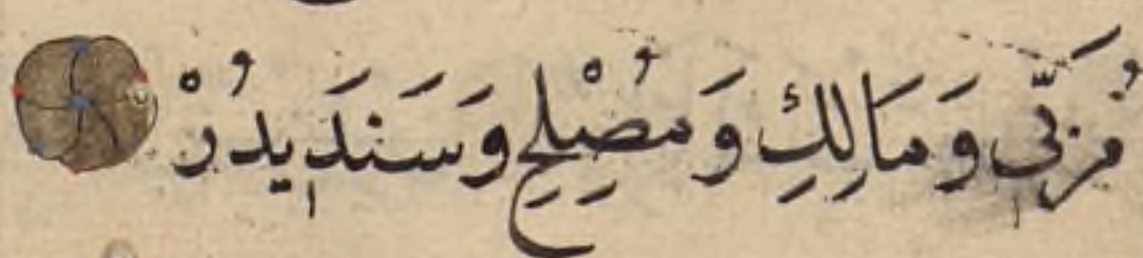 مُرَبّٖي وَ مَالِكِ وَ مُصْلِحِ وَسَنَدٖيدُرْ